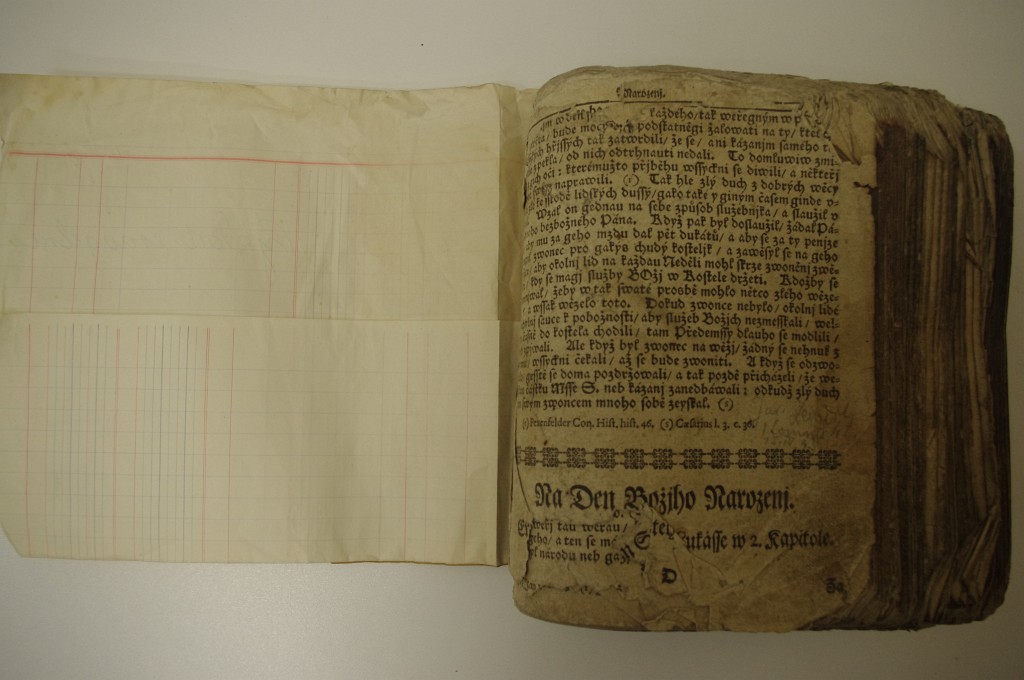 Narozenj.
každého/ tak wětregným w p
/ bude mocy podstatněgi žalowati na ty/ kteř
hřjssých tak zatwrdili/ že se/ ani kázanjm samého
z pekla/ od nich odtrhnauti nedali. To domluwiw zmi-
očí: kterémužto přjběhu wssyckni se diwili/ a někteřj
naprawili. (r) Tak hle zlý duch z dobrých wěcý
sskodě lidských dussý/ gako také y giným časem ginde v-
Wzal on gednau na sebe způsob služebnjka/ a slaužil v
bezbožného Pána. Když pak byl doslaužil/ žádal Pá-
mu za geho mzdu dal pět dukátů/ a aby se za ty penjze
zwonec pro gakys chudý kosteljk/ a zawěsyl se na geho
/ aby okolnj lid na každau Neděli mohl skrze zwoněnj zwě-
/ kdy se magj služby BOžj w Kostele držeti. Kdožby se
/ žeby w tak swaté prosbě mohlo něco zlého wěze-
a wssak wězelo toto. Dokud zwonce nebylo/ okolnj lidé
sauce k pobožnosti/ aby služeb Božjch nezmesskali/ wel-
do kostela chodili/ tam Předemssý dlauho se modlili/
zpjwali. Ale když byl zwonec na wěžj/ žádný se nehnul z
/ wssyckni čekali/ až se bude zwoniti. A když se odzwo-
gesstě se doma pozdržowali/ a tak pozdě přicházeli/ že we-
částku Msse S. neb kázanj zanedbáwali: odkudž zlý duch
swým zwoncem mnoho sobě zeyskal. (s)
(r) Prenfelder Con. Hist. hist. 46. (s) Cæsarius l. 3. c. 36.
Na Den Božjho Narozenj.
tau wěrau/
ukásse w 2. Kapitole.
/ a ten se
národu neb
D
Za